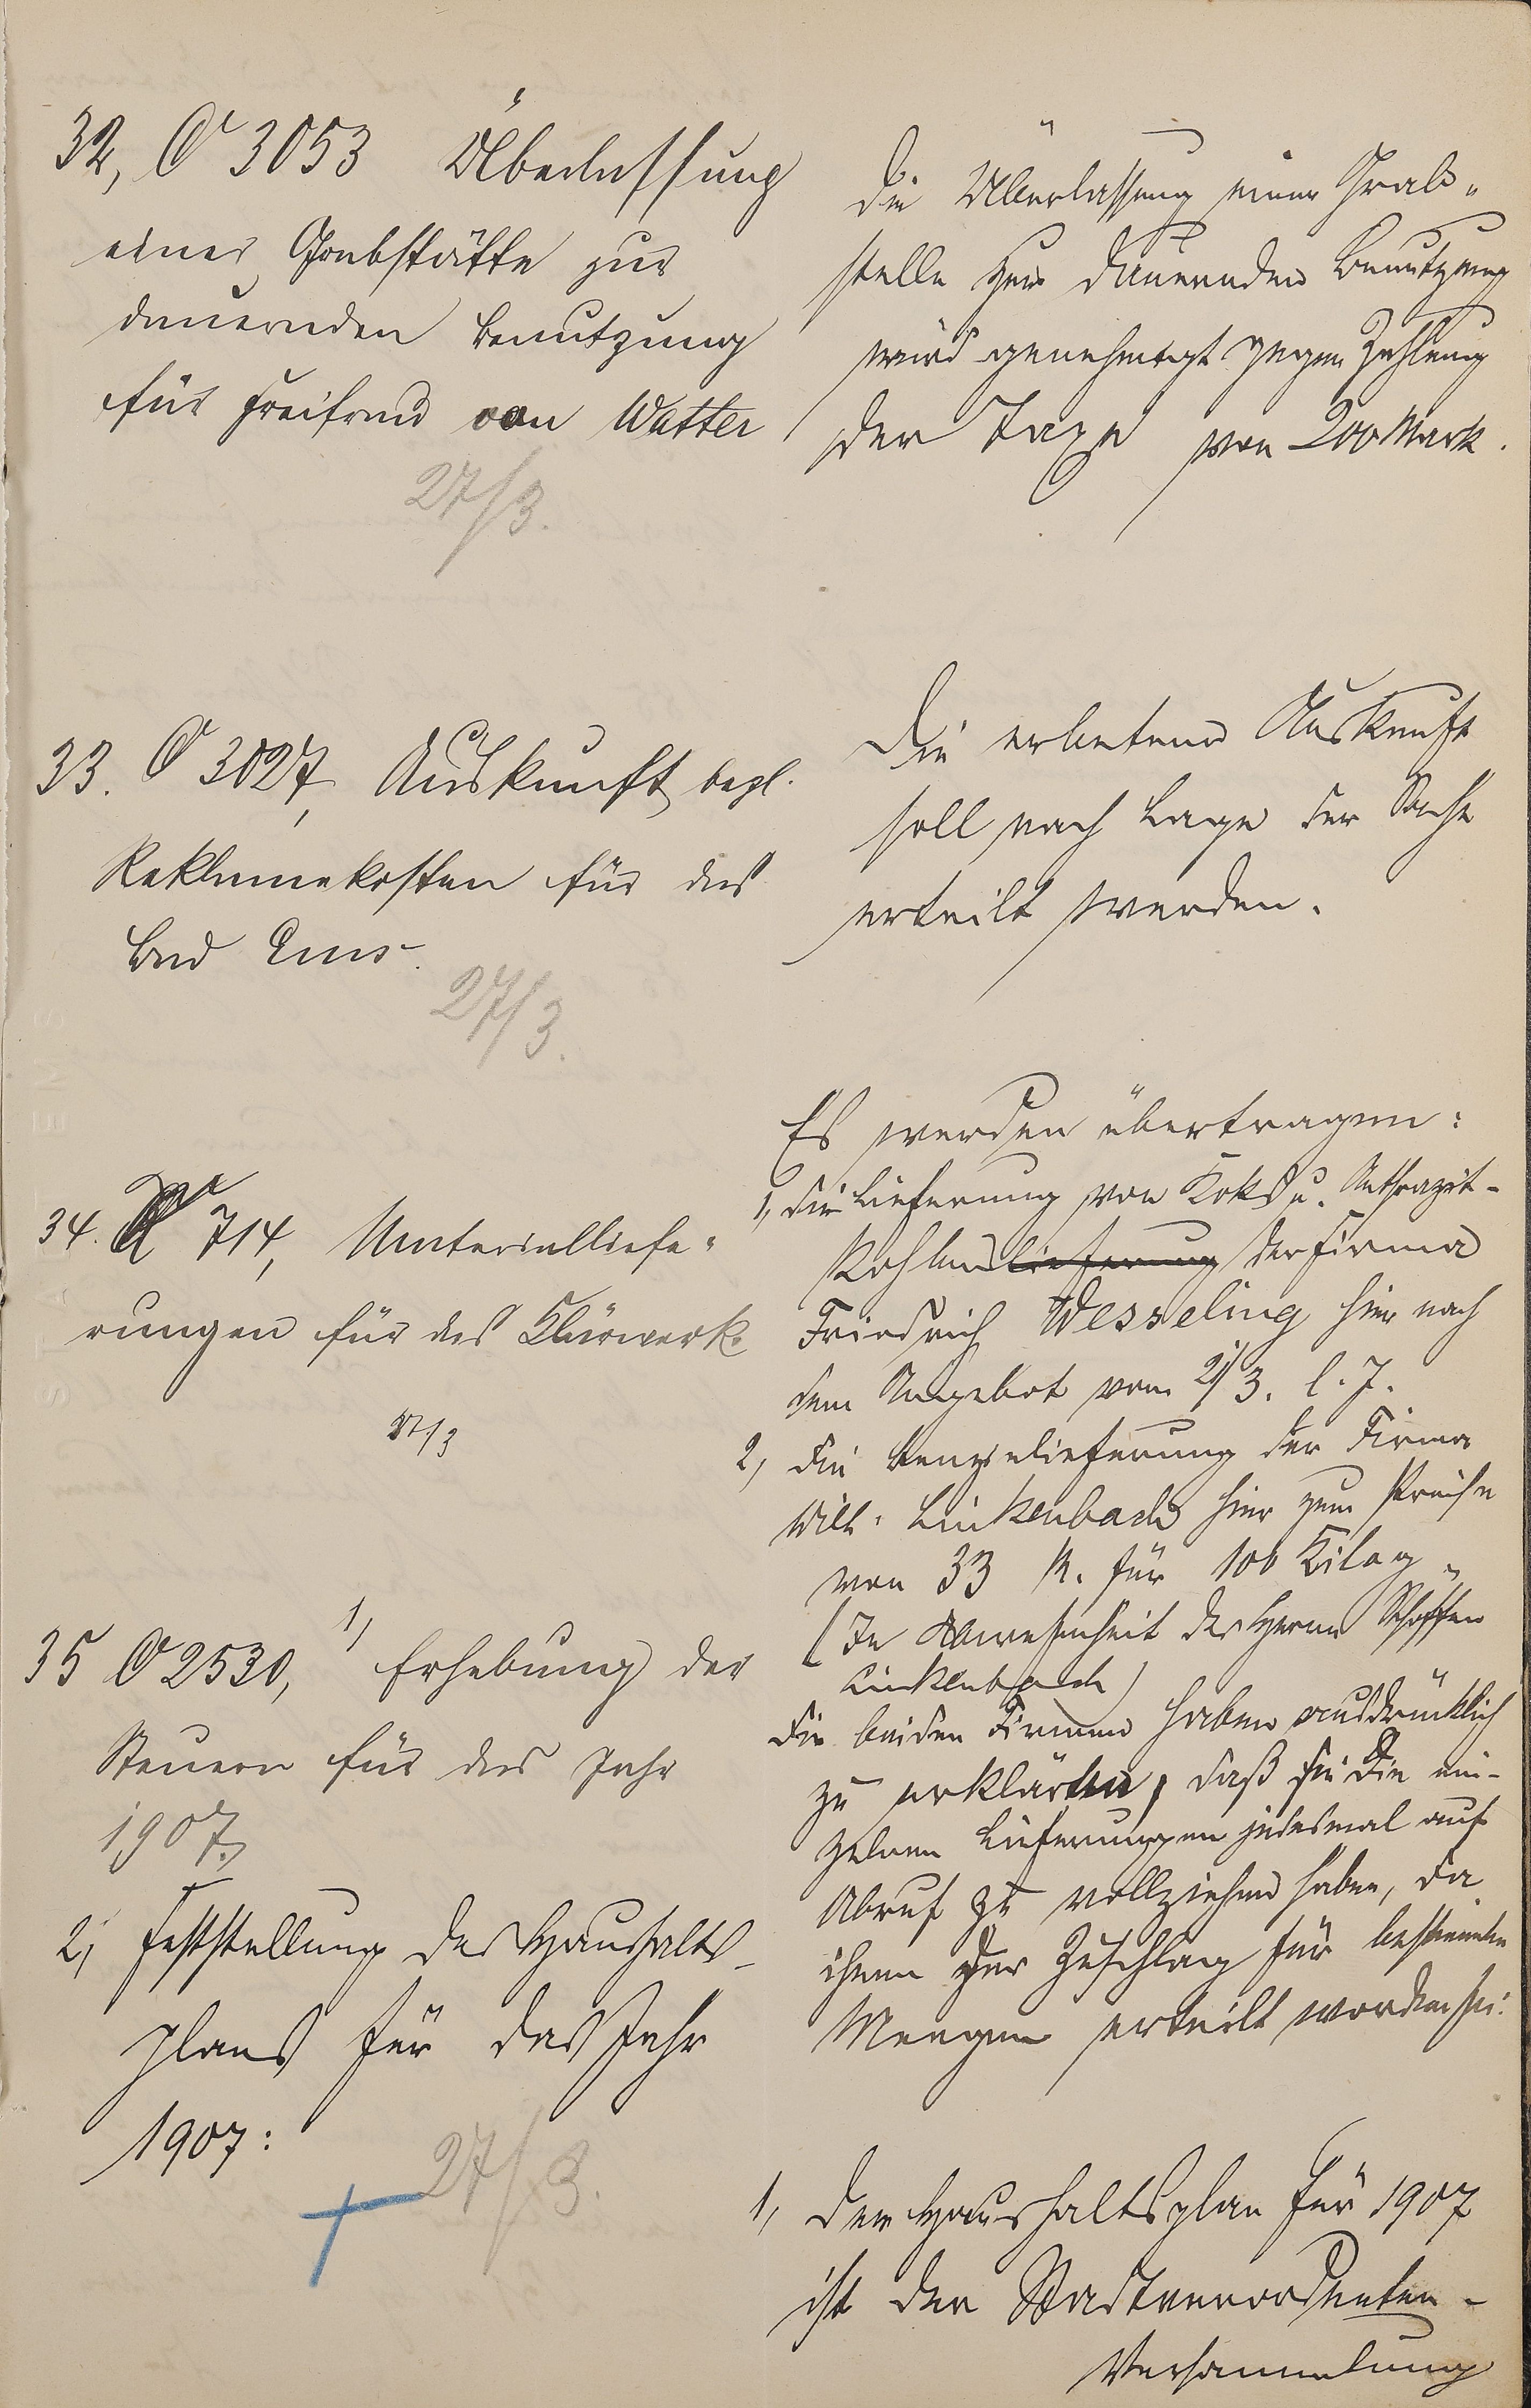 32, O 3053 Überlassung
einer Grabstätte zur
dauernden Benutzung
für Freifrau von Watter
27/3.
Die Überlassung einer Grab-
stelle zur dauernden Benutzung
wird genehmigt gegen Zahlung
der Taxe von 200 Mark.
33. O 3027, Auskunft bezl.
Reklamekosten für das
Bad Ems.
27/3.
Die erbetene Auskunft
soll nach Lage der Sache
erteilt werden.
34. 714, Materialliefe-
rungen für das Klärwerk.
27/3
Es werden übertragen:
1, die Lieferung von Koks u. Anthrazit-
kohlen lieferung der Firma
Friedrich Wesseling hier nach
dem Angebot vom 21/3. l. J.
2, die Benzinlieferung der Firma
Wilh. Linkenbach hier zum Preise
von 33 M. für 100 Kilog.
(In Abwesenheit des Herrn Schöffen
Linkenbach)
Die beiden Firmen haben ausdrücklich
zu erklären, daß sie die ein-
zelnen Lieferungen jedesmal auf
Abruf zu vollziehen haben, da
ihnen der Zuschlag für bestimmte
Mengen erteilt worden sei.
35 O 2530, 1, Erhebung der
Steuern für das Jahr
1907.,
2, Feststellung des Haushalts-
plans für das Jahr
1907:
27/3.
1, Der Haushaltsplan für 1907
ist der Stadtverordneten-
Versammlung